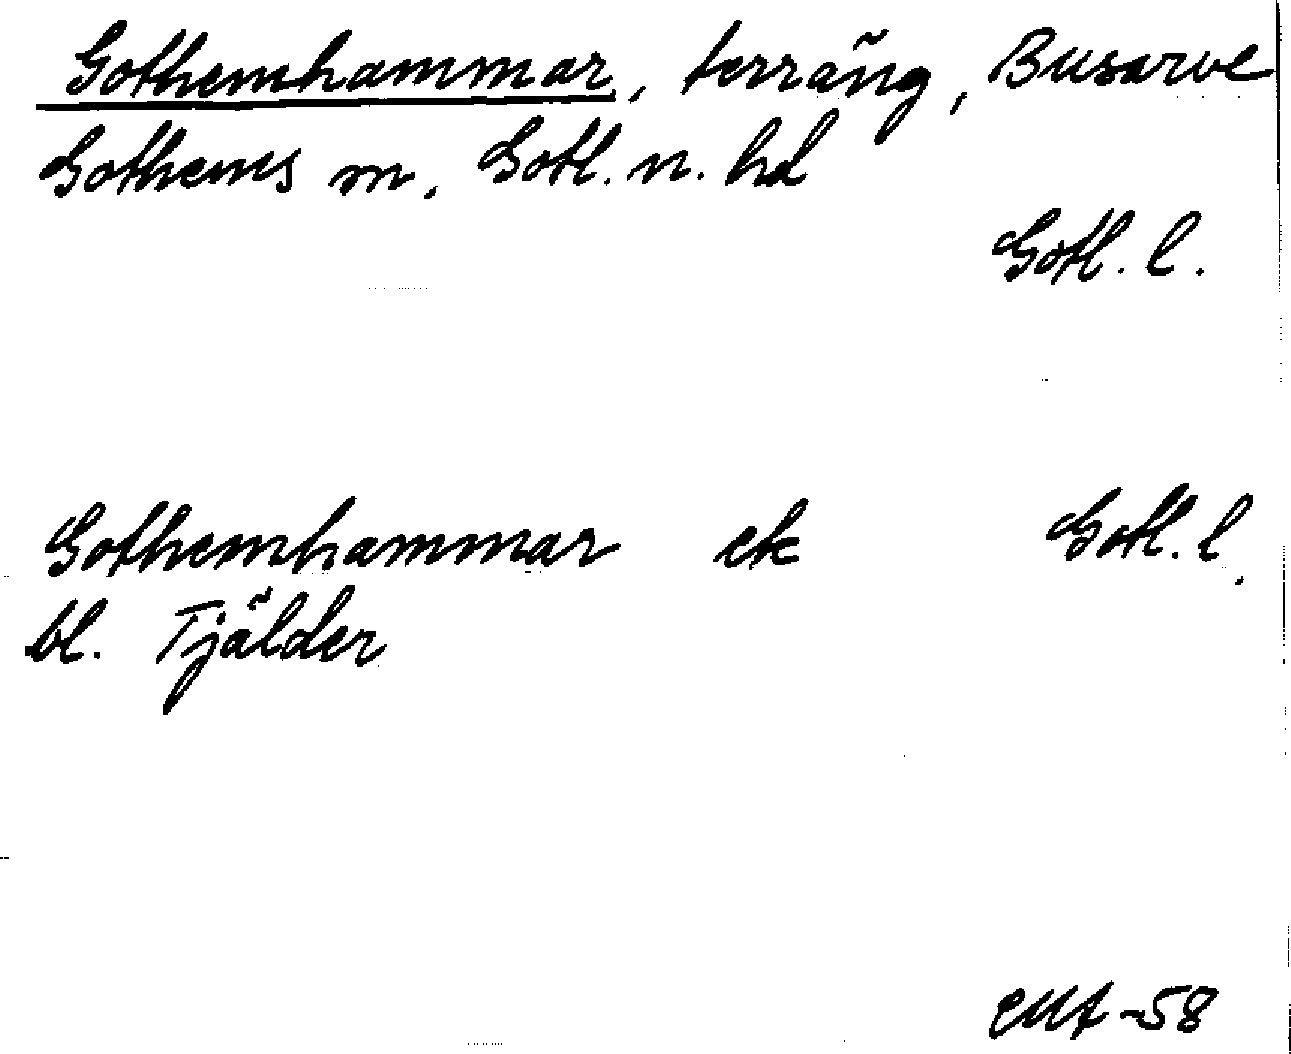 Gothemhammar, terräng, Busarve
Gothems m, Gotl. n. hd
Gotl. l.
Gothemhammar ek Gotl. l.
bl. Tjälder
-58